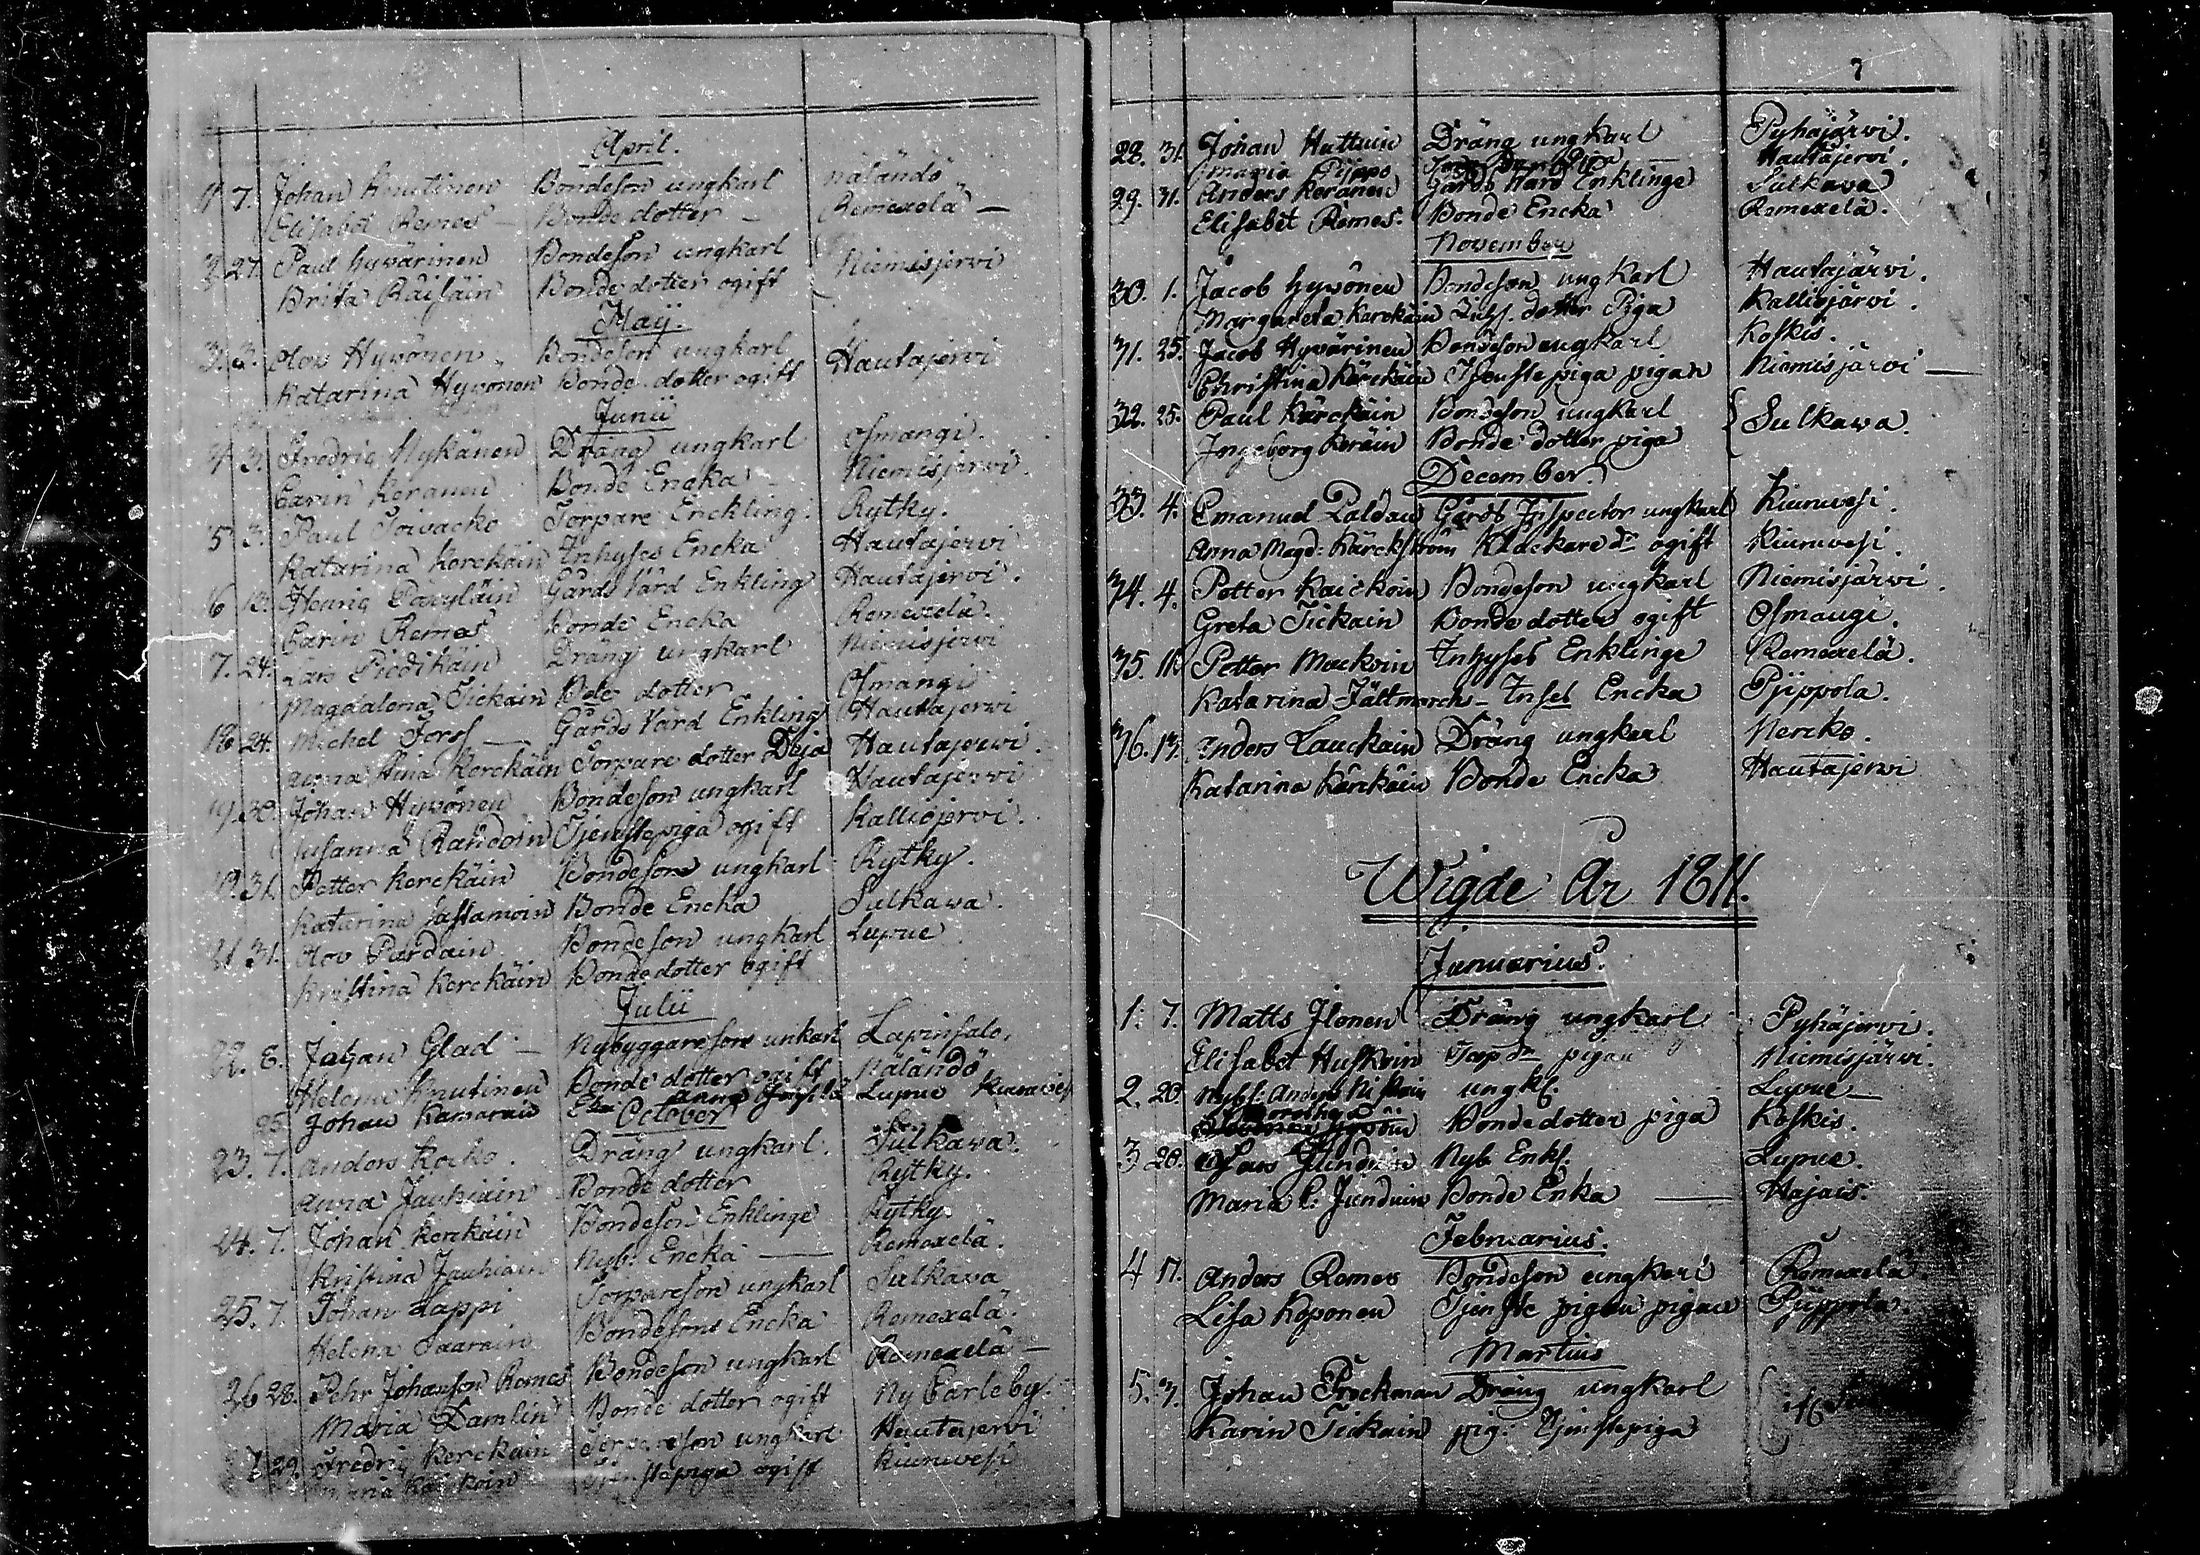 April.
11 7. Johan Knutinen Bondeson ungkarl Näländö
Elisabet Remes — Bonde dotter — Remexelä —
27. Paul Hyvärinen Bondeson ungkarl Niemisjervi
Brita Räisäin Bonde dotter ogift
Maij.
3. 3. Olov Hyvönen Bondeson ungkarl Hautajervi
Katarina Hyvönen Bonde dotter ogift
Junii
3. Fredric Nykänen Dräng ungkarl Osmangi.
Carin Keränen Bonde Encka Niemisjervi.
5 3. Paul Toivacko Torpare Enckling. Rytky.
Katarina Kerckäin Inhyses Encka Hautajervi
6 Henric Enkling Gårds Värd Hautajervi.
Carin Remes Bonde Encka Remexelä.
7. 24. Lars Piedikäin Dräng ungkarl Niemisjervi
Magdalena Tickain dotter Osmangi
18 24. Michel Forss — Gårds Värd Enkling Hautajervi
Anna Stina Kerckäin Torpare dotter Deja Hautajervi.
19. 30. Johan Hyvönen Bondeson ungkarl Hautajervi
Susanna Tjenstepiga ogift Kalliojervi.
31. Petter Kerckäin Bondeson ungkarl Rytky.
Katarina Sastamoin Bonde Encka Sulkawa.
21 31. Olov Pardain Bondeson ungkarl Lupue
Kristina Kerckäin Bonde dotter ogift
Julii
22. 8. Johan Glad — Nybyggareson unkarl Lapinsalo.
Helena Knutinen Bonde dotter ogift Näländö
25 Johan Anna Lupue
October
23. 7. Anders Kocko. Dräng ungkarl. Sulkawa.
Anna Jauhiain Bonde dotter Rytky.
24. 7. Johan Kerckäin Bondeson Enklinge Rytky.
Kristina Jauhiain Nyb: Encka — Remexelä.
25. 7. Johan Lappi Torpareson ungkarl Sulkava
Helena Saarain Bondesons Encka Remexelä.
26 28. Pehr Johansson Remes Bondeson ungkarl Remexelä —
Maria Damlin Bonde dotter ogift Ny Carleby.
7 29. Fredric Kerckain Torpareson ungkarl Hautajervi
Maria Tjenstepiga ogift Kiuruvesi
7
28. 31. Johan Huttuin Dräng ungkarl Pyhäjärvi.
Maria Pijppo Hautajervi.
29. 31. Anders Keränen Gårds Värd Enklinge Sulkava
Elisabet Remes. Bonde Encka Remexelä.
November
30. 1. Jacob Hyvönen Bondeson ungkarl Hautajärvi.
Margareta Kerckäin dotter Piga Kalliojärvi.
31. 25. Jacob Hyvärinen Bondeson ungkarl Koskis.
Christina Kärckäin Tjenstepiga pigan Niemisjärvi —
32. 25. Paul Kärckäin Bondeson ungkarl Sulkawa.
Ingeborg Keräin Bonde dotter piga
December.
33. 4. Emanuel Paldan Gårds Inspector ungkarl Kiuruvesi.
Anna Magd: Kärckström Klåckare dr ogift Kiuruvesi.
34. 4. Petter Kaickoin Bondeson ungkarl Niemisjärvi.
Greta Tickain Bonde dotter ogift Osmangi.
35. 11. Petter Mackoin Inhyses Enklinge Remexelä.
Katarina Fältmarch — Inses Encka Pijppola.
36. 13. Anders Lauckain Dräng ungkarl Nercko.
Katarina Kärckäin Bonde Encka Hautajervi
Wigde År 1811.
Januarius.
1. 7. Matts Ilonen Dräng ungkarl Pyhäjervi.
Elisabet Huskoin Torp dr pigan Niemisjärvi.
2. 20. Nybl: Anders ungkl. Lupue —
Bonde dotter piga Koskis.
3 28. Lars Junduin Nyb Enkl. Lupue.
Maria L: Junduin Bonde Enka — Hajais.
Februarius.
4 17. Anders Remes Bondeson ungkarl Remexelä
Lisa Koponen Tjenste pigan pigan Pijppola.
Martius
5. 3. Johan Brockman Dräng ungkarl
Karin Tickain pig. Tjenstepiga